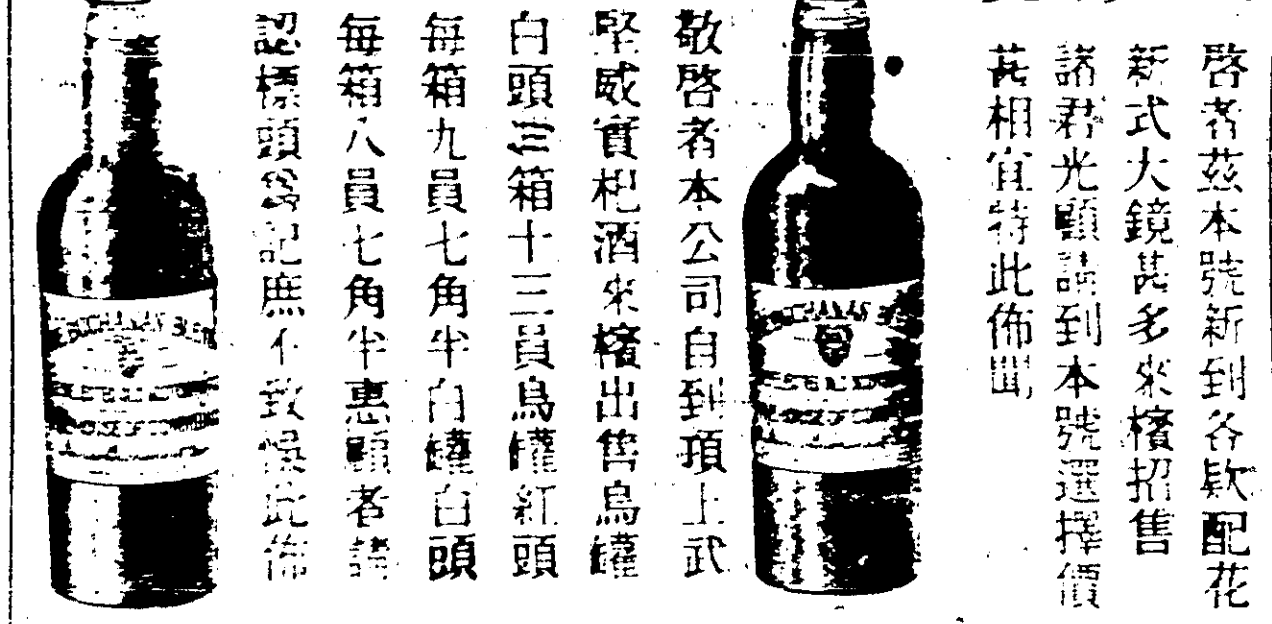 啓者茲本號新到各欵配花
新式大鏡甚多來檳招售
諸君光顧請到本號選擇價
甚相宜特此佈聞
敬啓者本公司自到頂上武
堅威實杷酒來檳出售烏罐
白頭三箱十三員烏罐紅頭
每箱九員七角半白罐白頭
每箱八員七角半惠顧者請
認標頭爲記庶不致悞此佈
BUCHANAN'S
BUCHANAN'S